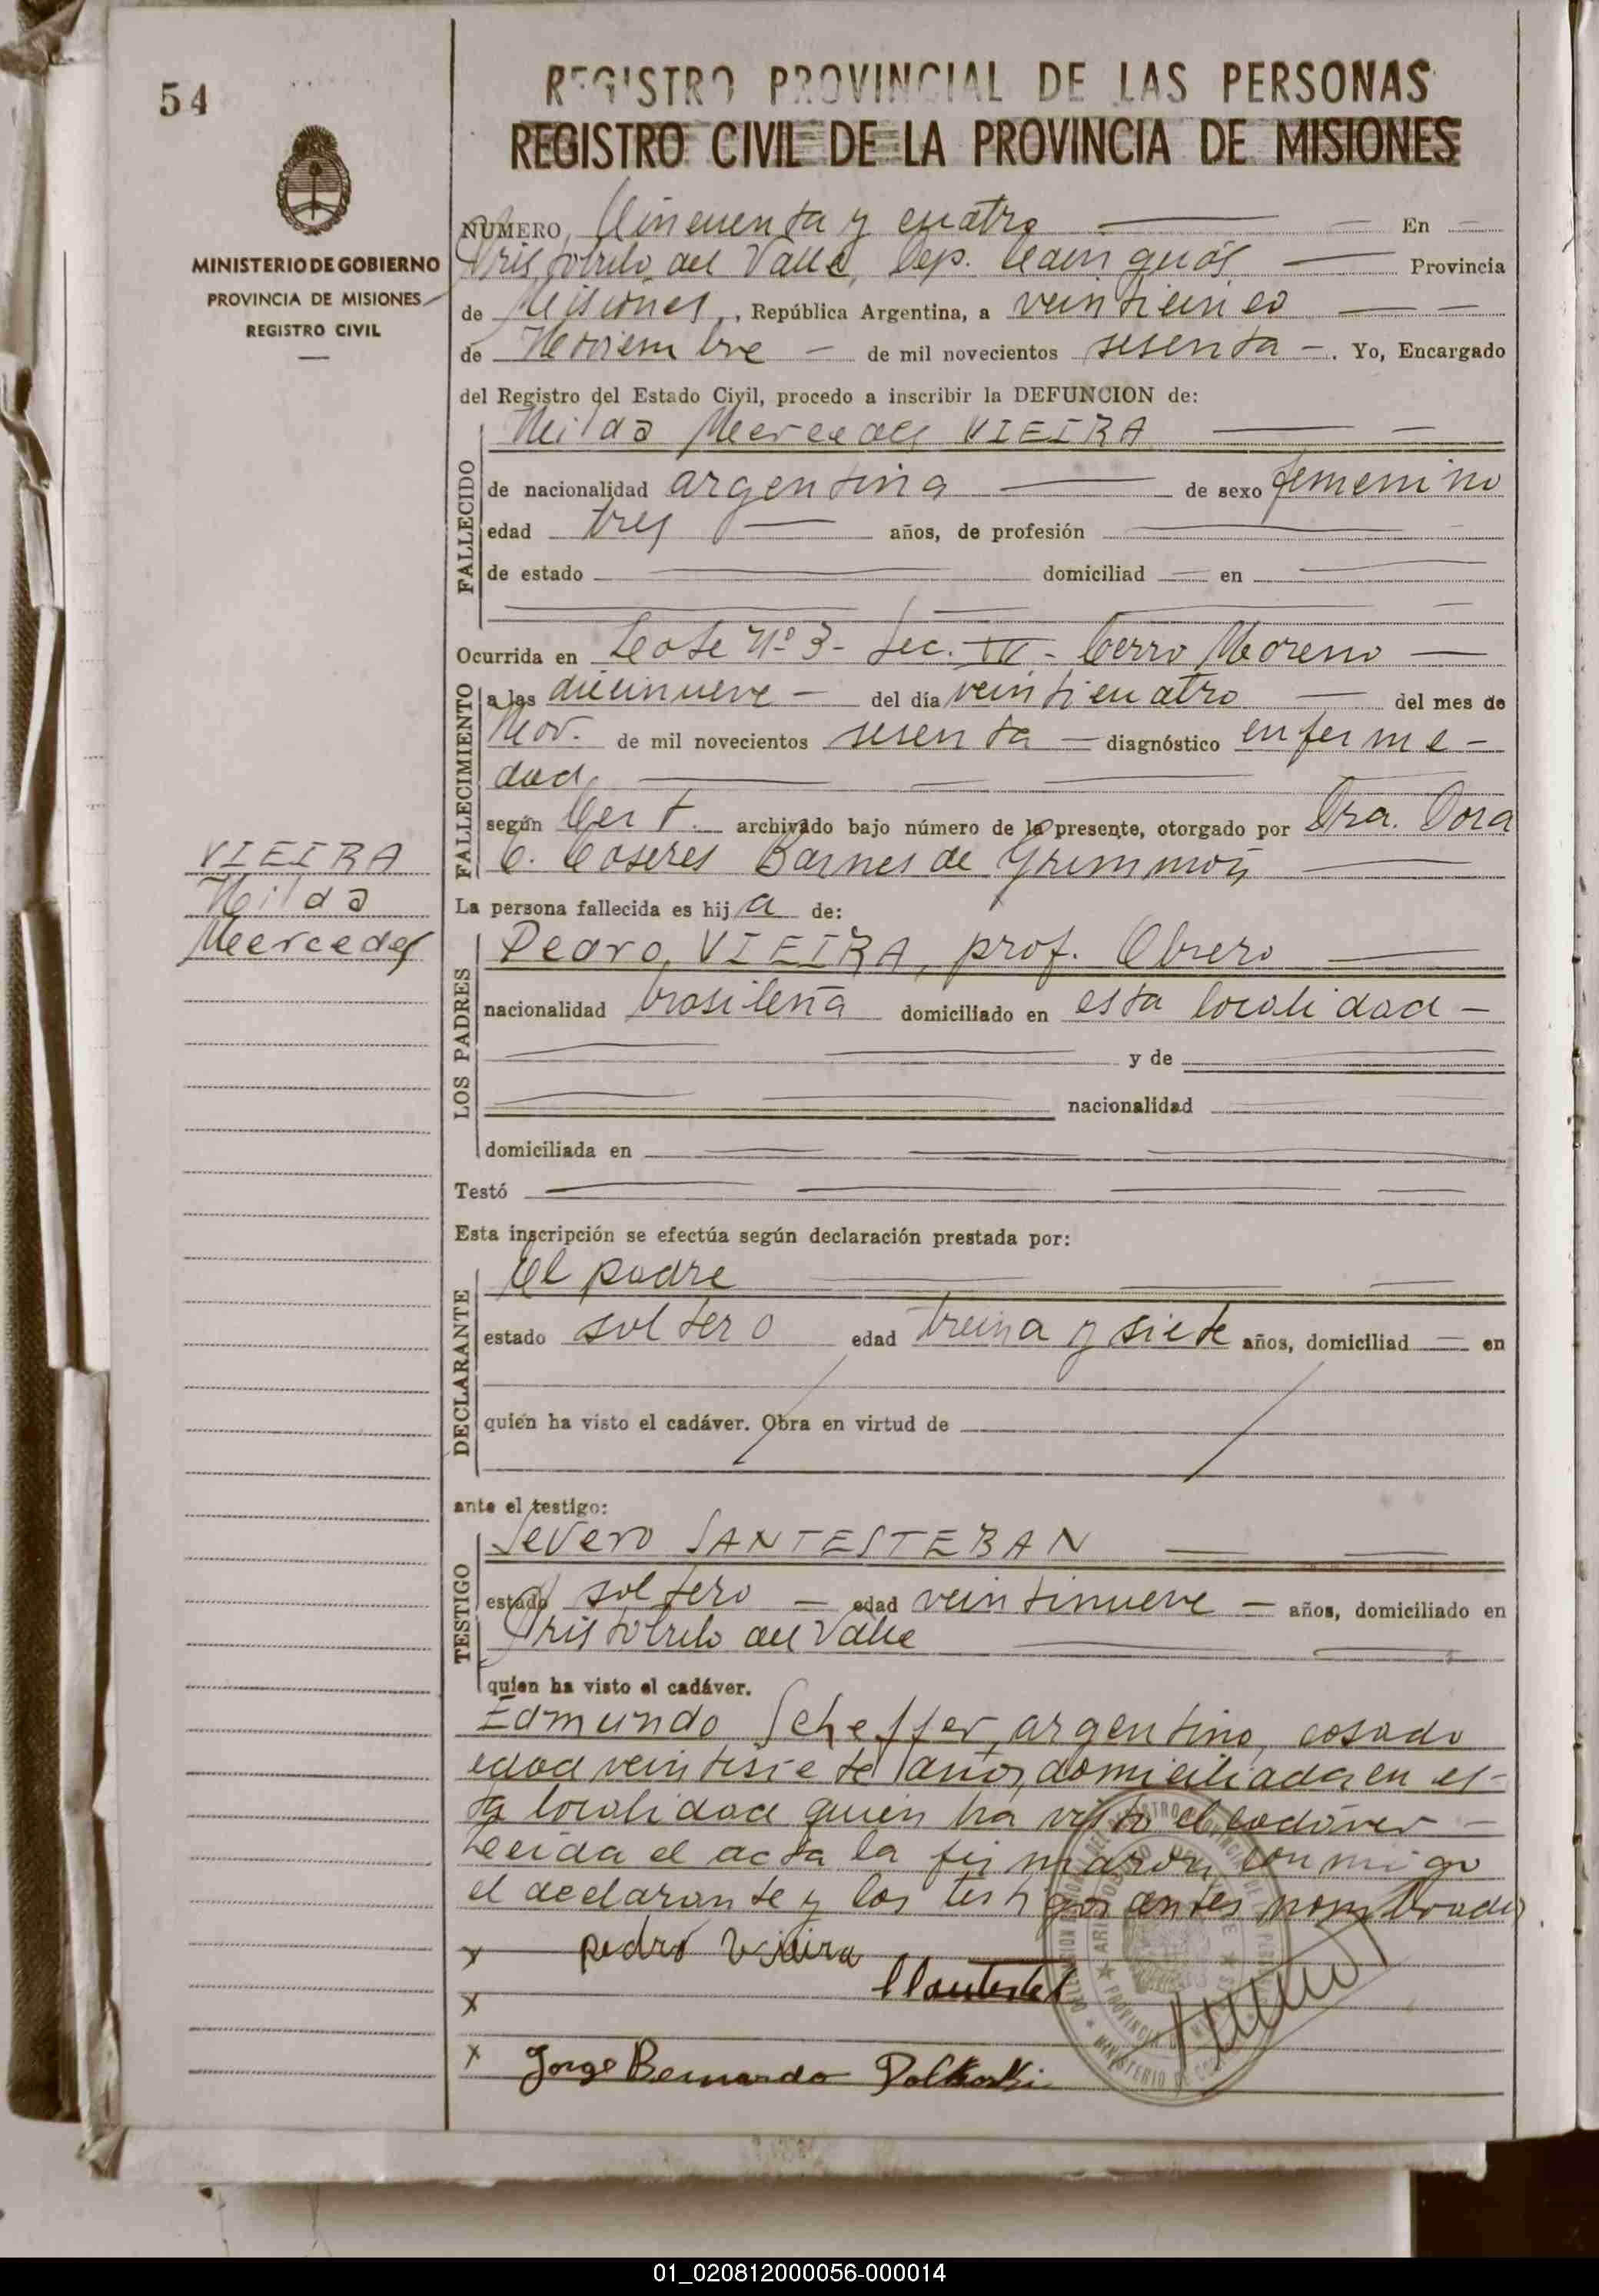 54
REGISTRO PROVINCIAL DE LAS PERSONAS
REGISTRO CIVIL DE LA PROVINCIA DE MISIONES
MINISTERIO DE GOBIERNO
PROVINCIA DE MISIONES
REGISTRO CIVIL
NUMERO Cincuenta y cuatro En
Aristóbulo del Valle, Dep. Cainguás Provincia
de Misiones, República Argentina, a veinticinco
de Noviembre de mil novecientos sesenta. Yo, Encargado
del Registro del Estado Civil, procedo a inscribir la DEFUNCION de:
FALLECIDO
Nilda Mercedes VIEIRA
de nacionalidad argentina de sexo femenino
edad tres años, de profesión
de estado domiciliad en
Ocurrida en Lote Nº 3 - Sec. - Cerro Moreno
FALLECIMIENTO
a las diecinueve del día veinticuatro del mes de
Nov. de mil novecientos sesenta diagnóstico enferme-
dad
según Cert. archivado bajo número de la presente, otorgado por Dra. Dora
C. Caseres Barnes de
VIEIRA
Nilda
Mercedes
La persona fallecida es hija de:
LOS PADRES
Pedro VIEIRA, prof. Obrero
nacionalidad brasileña domiciliado en esta localidad
y de
nacionalidad
domiciliada en
Testó
Esta inscripción se efectúa según declaración prestada por:
DECLARANTE
El padre
estado soltero edad treina y siete años, domiciliad en
quien ha visto el cadáver. Obra en virtud de
ante el testigo:
TESTIGO
Severo SANTESTEBAN
estado soltero edad veintinueve años, domiciliado en
Aristóbulo del Valle
quien ha visto el cadáver.
Edmundo Scheffer, argentino, casado
edad veintisiete años, domiciliada en es-
ta localidad quien ha visto el cadáver
Leeida el acta la firmaron conmigo
el declarante y los testigos antes nombrados
x pedro Vieira
x
x Jorge Bernardo
01_020812000056-000014